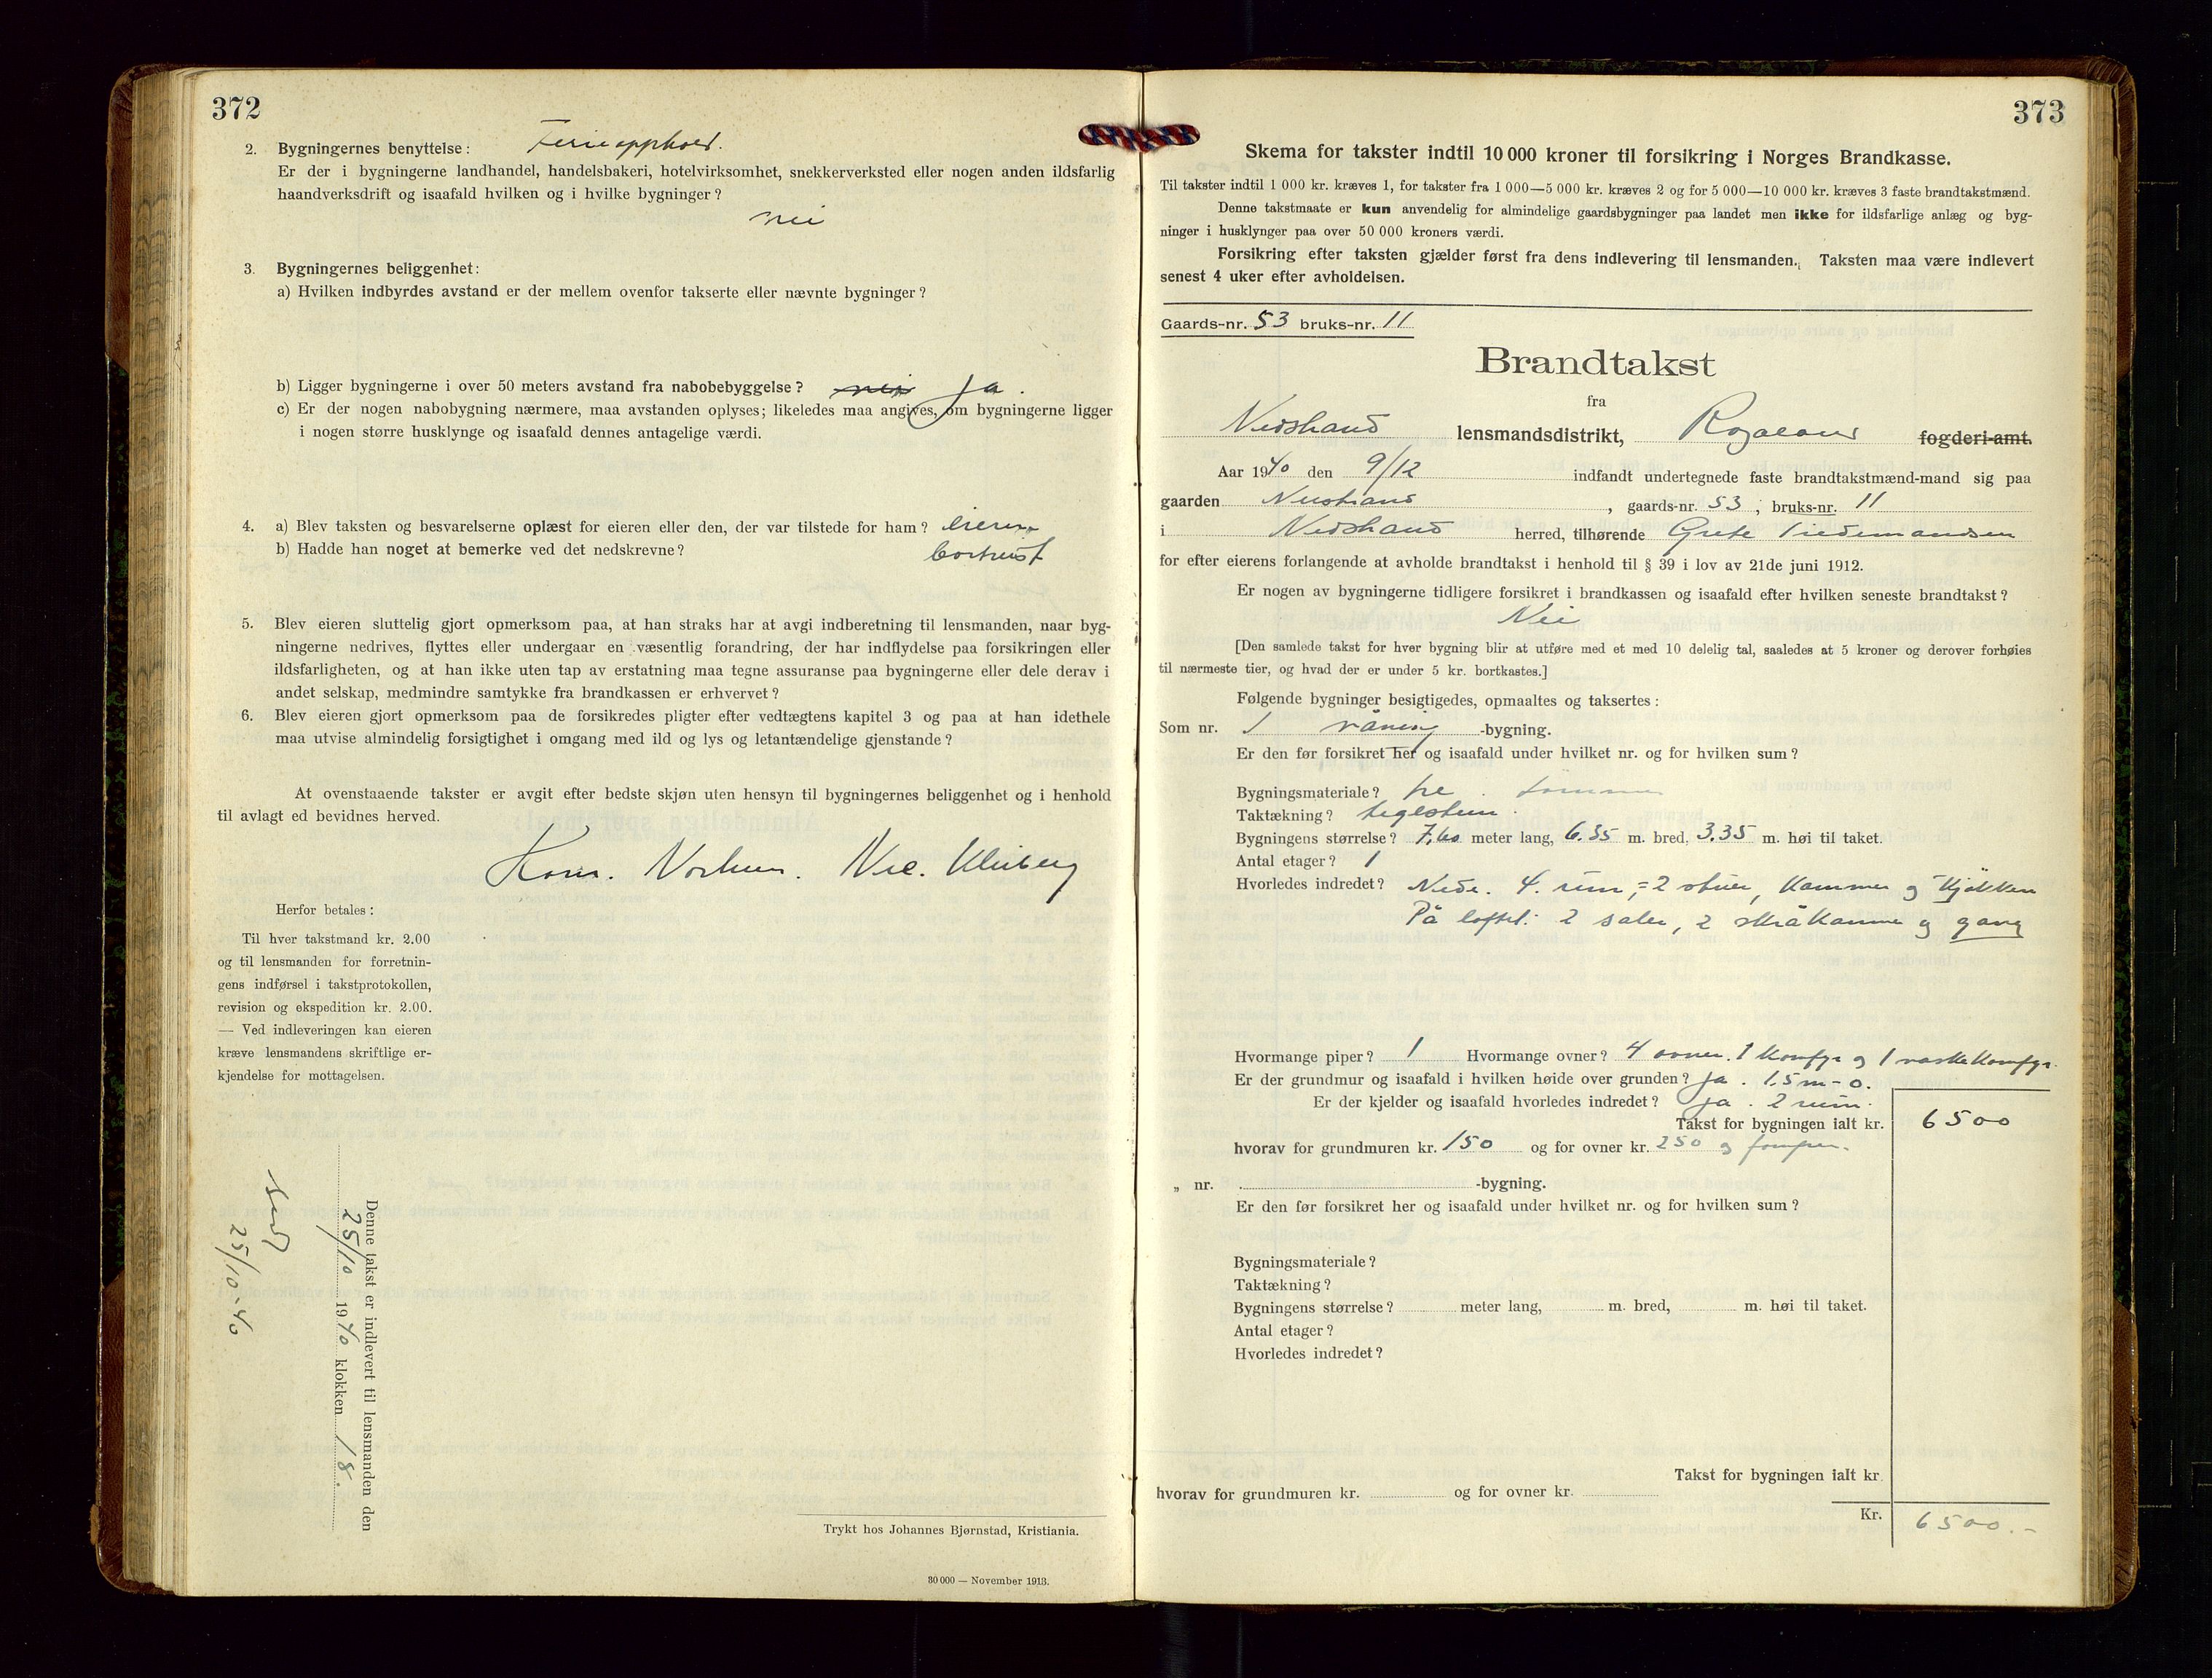 372
2. Bygningernes benyttelse: Ferieopphold.
Er der i bygningerne landhandel, handelsbakeri, hotelvirksomhet, snekkerverksted eller nogen anden ildsfarlig
haandverksdrift og isaafald hvilken og i hvilke bygninger?
nei
3. Bygningernes beliggenhet:
a) Hvilken indbyrdes avstand er der mellem ovenfor takserte eller nævnte bygninger?
b) Ligger bygningerne i over 50 meters avstand fra nabobebyggelse? nei Ja.
c) Er der nogen nabobygning nærmere, maa avstanden oplyses; likeledes maa angives, om bygningerne ligger
i nogen større husklynge og isaafald dennes antagelige værdi.
4. a) Blev taksten og besvarelserne oplæst for eieren eller den, der var tilstede for ham? eieren
b) Hadde han noget at bemerke ved det nedskrevne? bortreist
5. Blev eieren sluttelig gjort opmerksom paa, at han straks har at avgi indberetning til lensmanden, naar byg-
ningerne nedrives, flyttes eller undergaar en væsentlig forandring, der har indflydelse paa forsikringen eller
ildsfarligheten, og at han ikke uten tap av erstatning maa tegne assuranse paa bygningerne eller dele derav i
andet selskap, medmindre samtykke fra brandkassen er erhvervet?
6. Blev eieren gjort opmerksom paa de forsikredes pligter efter vedtægtens kapitel 3 og paa at han idethele
maa utvise almindelig forsigtighet i omgang med ild og lys og letantændelige gjenstande?
At ovenstaaende takster er avgit efter bedste skjøn uten hensyn til bygningernes beliggenhet og i henhold
til avlagt ed bevidnes herved.
Herfor betales:
Til hver takstmand kr. 2.00
og til lensmanden for forretnin-
gens indførsel i takstprotokollen,
revision og ekspedition kr. 2.00.
— Ved indleveringen kan eieren
kræve lensmandens skriftlige er-
kjendelse for mottagelsen.
Denne takst er indlevert til lensmanden den
25/10 1940 klokken 18.
Sendt
25/10-40
Trykt hos Johannes Bjørnstad, Kristiania.
30 000 — November 1913.
373
Skema for takster indtil 10 000 kroner til forsikring i Norges Brandkasse.
Til takster indtil 1 000 kr. kræves 1, for takster fra 1 000—5 000 kr. kræves 2 og for 5 000—10 000 kr. kræves 3 faste brandtakstmænd.
Denne takstmaate er kun anvendelig for almindelige gaardsbygninger paa landet men ikke for ildsfarlige anlæg og byg-
ninger i husklynger paa over 50 000 kroners værdi.
Forsikring efter taksten gjælder først fra dens indlevering til lensmanden. Taksten maa være indlevert
senest 4 uker efter avholdelsen.
Gaards-nr. 53 bruks-nr. 11
Brandtakst
fra
Nedstrand lensmandsdistrikt, Rogaland fogderi-amt.
Aar 1940 den 9/12 indfandt undertegnede faste brandtakstmænd-mand sig paa
gaarden Nedstrand, gaards-nr. 53, bruks-nr. 11
i Nedstrand herred, tilhørende Grete Tiedemandsen
for efter eierens forlangende at avholde brandtakst i henhold til § 39 i lov av 21de juni 1912.
Er nogen av bygningerne tidligere forsikret i brandkassen og isaafald efter hvilken seneste brandtakst?
Nei
[Den samlede takst for hver bygning blir at utføre med et med 10 delelig tal, saaledes at 5 kroner og derover forhøies
til nærmeste tier, og hvad der er under 5 kr. bortkastes.]
Følgende bygninger besigtigedes, opmaaltes og taksertes:
Som nr. 1 våning -bygning.
Er den før forsikret her og isaafald under hvilket nr. og for hvilken sum?
Bygningsmateriale? tre. tømmer
Taktækning? teglsten.
Bygningens størrelse? 7,60 meter lang, 6.35 m. bred, 3.35 m. høi til taket.
Antal etager? 1
Hvorledes indredet? Nede. 4. rum, = 2 stuer, kammer og kjøkken
På loftet: 2 saler, 2 skråkamme og gang
Hvormange piper? 1 Hvormange ovner? 4 ovner. 1 komfyr og 1 vaskekomfyr.
Er der grundmur og isaafald i hvilken høide over grunden? ja. 1.5 m - 0.
Er der kjelder og isaafald hvorledes indredet? ja. 2 rum.
Takst for bygningen ialt kr. 6500
hvorav for grundmuren kr. 150 og for ovner kr. 250 og
„ nr. -bygning.
Er den før forsikret her og isaafald under hvilket nr. og for hvilken sum?
Bygningsmateriale?
Taktækning?
Bygningens størrelse? meter lang, m. bred, m. høi til taket.
Antal etager?
Hvorledes indredet?
Takst for bygningen ialt kr.
hvorav for grundmuren kr. og for ovner kr.
Kr. 6500.-